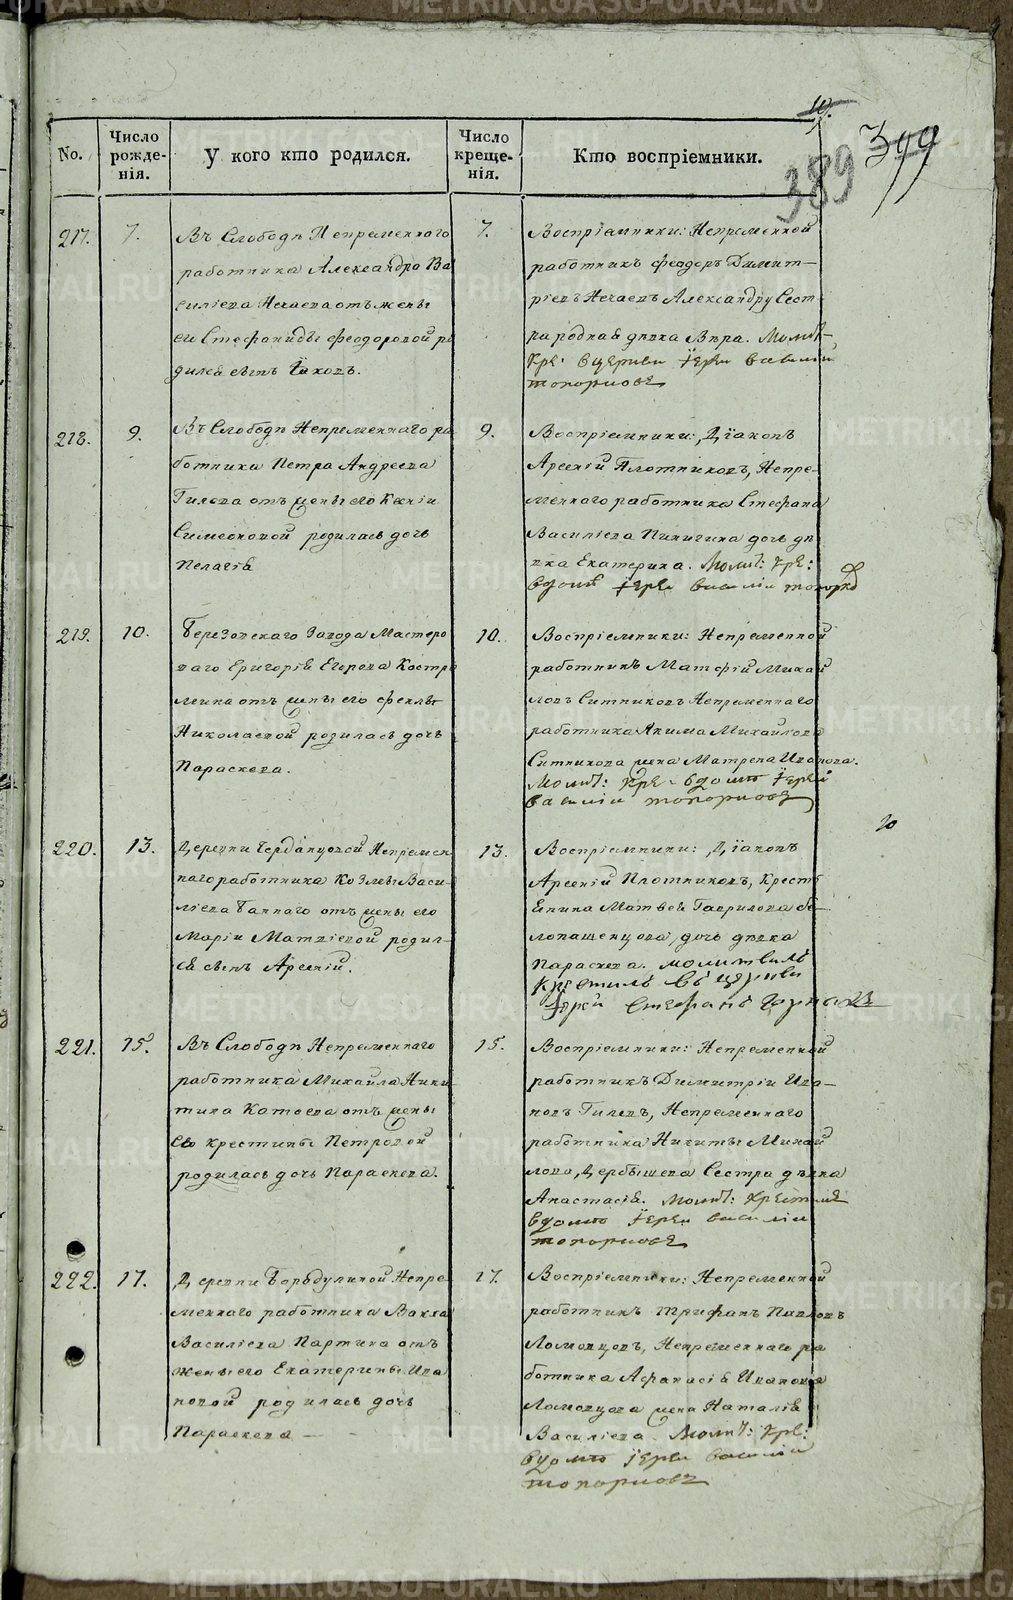 10.
389 399
No.
Число рожде-нія.
У кого кто родился.
Число креще-нія.
Кто воспріемники.
217. 7.
Въ Слободѣ Непременнаго
работника Александра Ва
силіева Нечаева отъ жены
ег Стефаниды Феодоровой ро
дился сынъ Іаковъ.
7.
Воспріемники: Непременной
работникъ Феодоръ Димит-
ріевъ Нечаевъ Александру Сест
ра родная девка Вера. Молит-
Кре: в церкви Іерей Василій
топорковъ
218. 9.
Въ Слободѣ Непременнаго ра
ботника Петра Андреева
Гилева отъ жены его Ксеніи
Симеоновой родилась дочь
Пелагія
9.
Воспріемники: Діаконъ
Арсеній Плотниковъ, Непре-
меннаго работника Стефана
Василіева Пиничина дочь дѣ
вка Екатерина. Молит: Кре:
вдомѣ Іерей Василій топорко
219. 10.
Березовскаго Завода Мастеро
ваго Григорія Егорова Костро
мина отъ жены его Феклы
Николаевой родилась дочь
Параскева.
10.
Воспріемники: Непременной
работникъ Матфій Михай
ловъ Ситниковъ Непременнаго
работника Якима Михайлова
Ситникова жена Матрена Иванова.
Молит: Кре- вдомѣ Іерей
Василій топорковъ
20
220. 13.
Деревни Чердынцовой Непремен
наго работника Козмы Васи-
ліева Баннаго отъ жены его
Маріи Матвіевой родил-
ся сынъ Арсеній.
13.
Воспріемники: Діаконъ
Арсеній Плотниковъ, Кресть
янина Матвея Гаврилова бе-
лопашенцова дочь девка
Параскева. Молитвилъ
Крестилъ въ церкви
Іерей Стефанъ
221. 15.
Въ Слободѣ Непременнаго
работника Михайла Ники-
тина Катаева отъ жены
его Крестины Петровой
родилась дочь Параскева.
15.
Воспріемники: Непременной
работникъ Димитрій Ива-
новъ Гилевъ, Непременнаго
работника Никиты Михай
лова, Дербышева Сестра девка
Анастасія. Молит: Крестилъ
вдомѣ Іерей Василій
топорковъ
222. 17.
Деревни Барабулиной Непре-
меннаго работника Вакха
Василіева Партина отъ
жены его Екатерины Ива
новой родилась дочь
Параскева
17.
Воспріемники: Непременной
работникъ Трифанъ Павловъ
Ломовцовъ, Непременнаго ра
ботника Афанасія Иванова
Ломовцова жена Наталія
Василіева. Молит: Кре:
вдомѣ Іерей Василій
топорковъ
METRIKI.GASO-URAL.RU